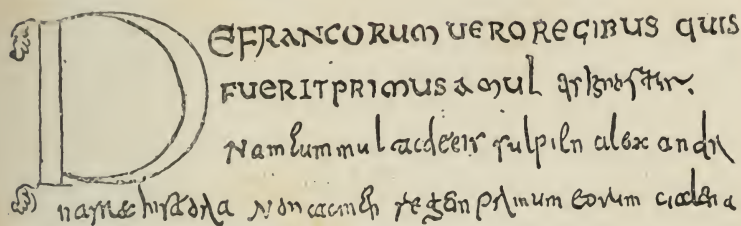 DE FRANCORUM UERO REGIBUS QUIS
FUERIT PRIMUS A MUL ignoratur.
Nam cum multa de eis sulpici alexandri
narrat historia non tamen regem primum eorum